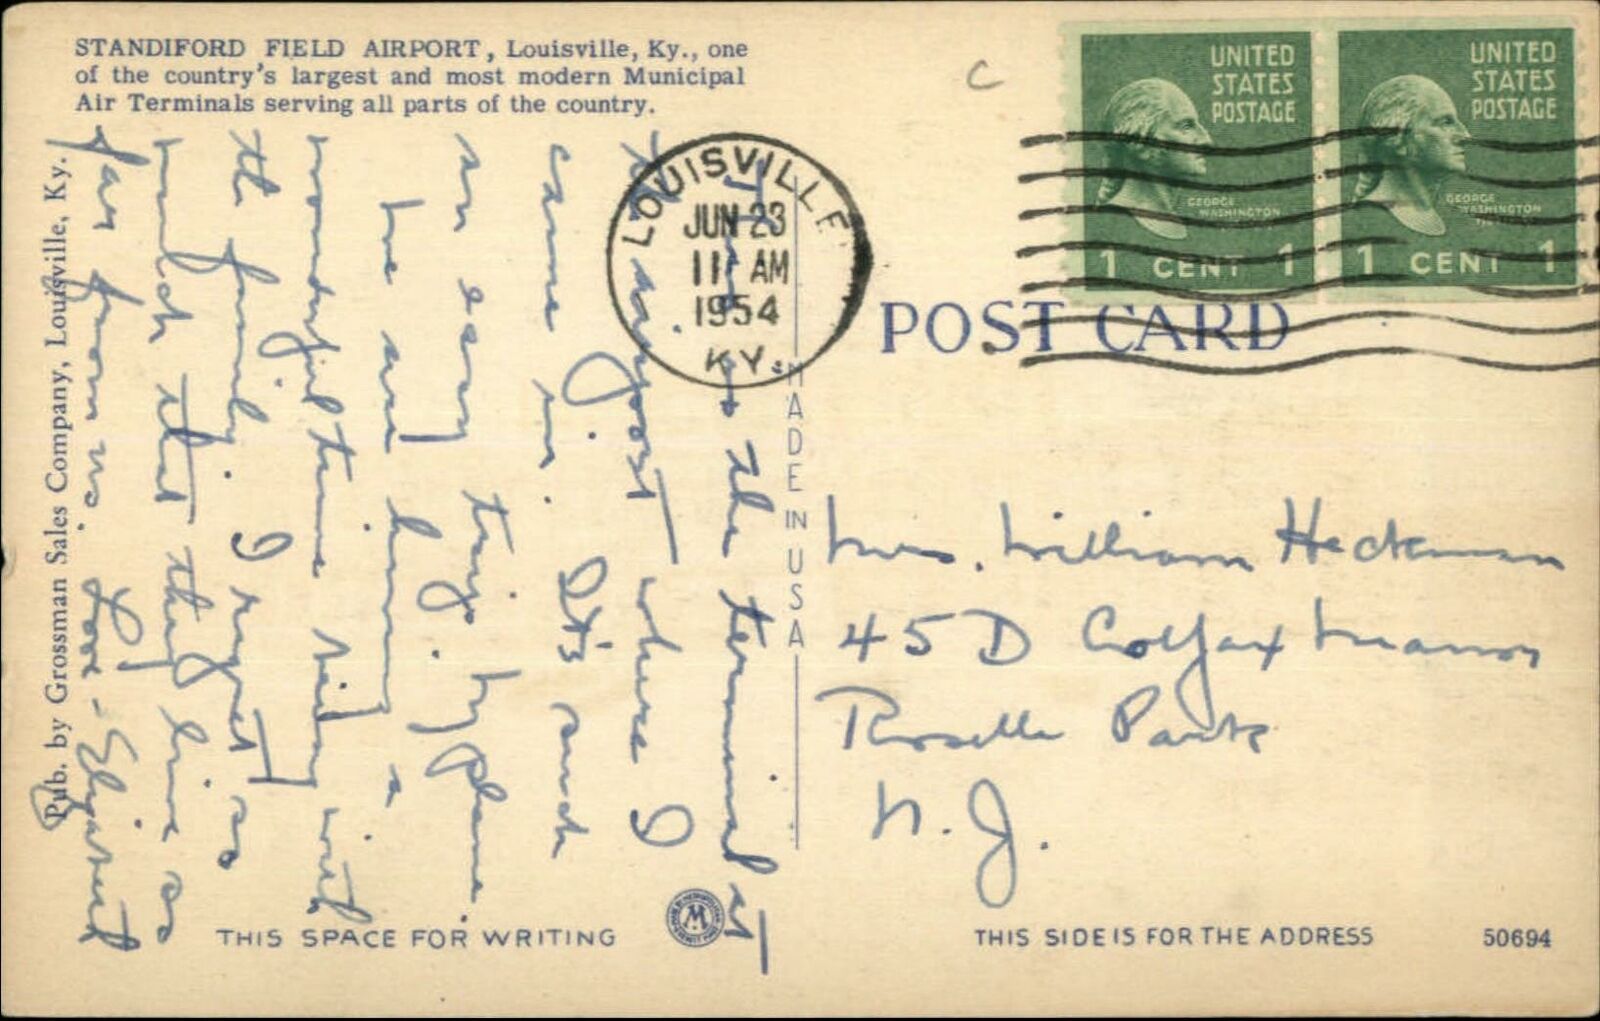 STANDIFORD FIELD AIRPORT, Louisville, Ky., one
of the country's largest and most modern Municipal
Air Terminals serving all parts of the country.
is the terminal at
the airport where I
came in. It's such
an easy trip by plane.
We are having a
wonderful time being with
the family. I regret so
much that they live so
far from us. Love - Elizabeth
Pub. by Grossman Sales Company, Louisville, Ky.
THIS SPACE FOR WRITING
MADE IN USA
LOUISVILLE
JUN 23
11 AM
1954
KY.
C
UNITED
STATES
POSTAGE
GEORGE
WASHINGTON
1 CENT 1
UNITED
STATES
POSTAGE
GEORGE
WASHINGTON
1 CENT 1
POST CARD
Mrs. William Heckman
45 D Colfax Manor
Roselle Park
N. J.
THIS SIDE IS FOR THE ADDRESS
50694